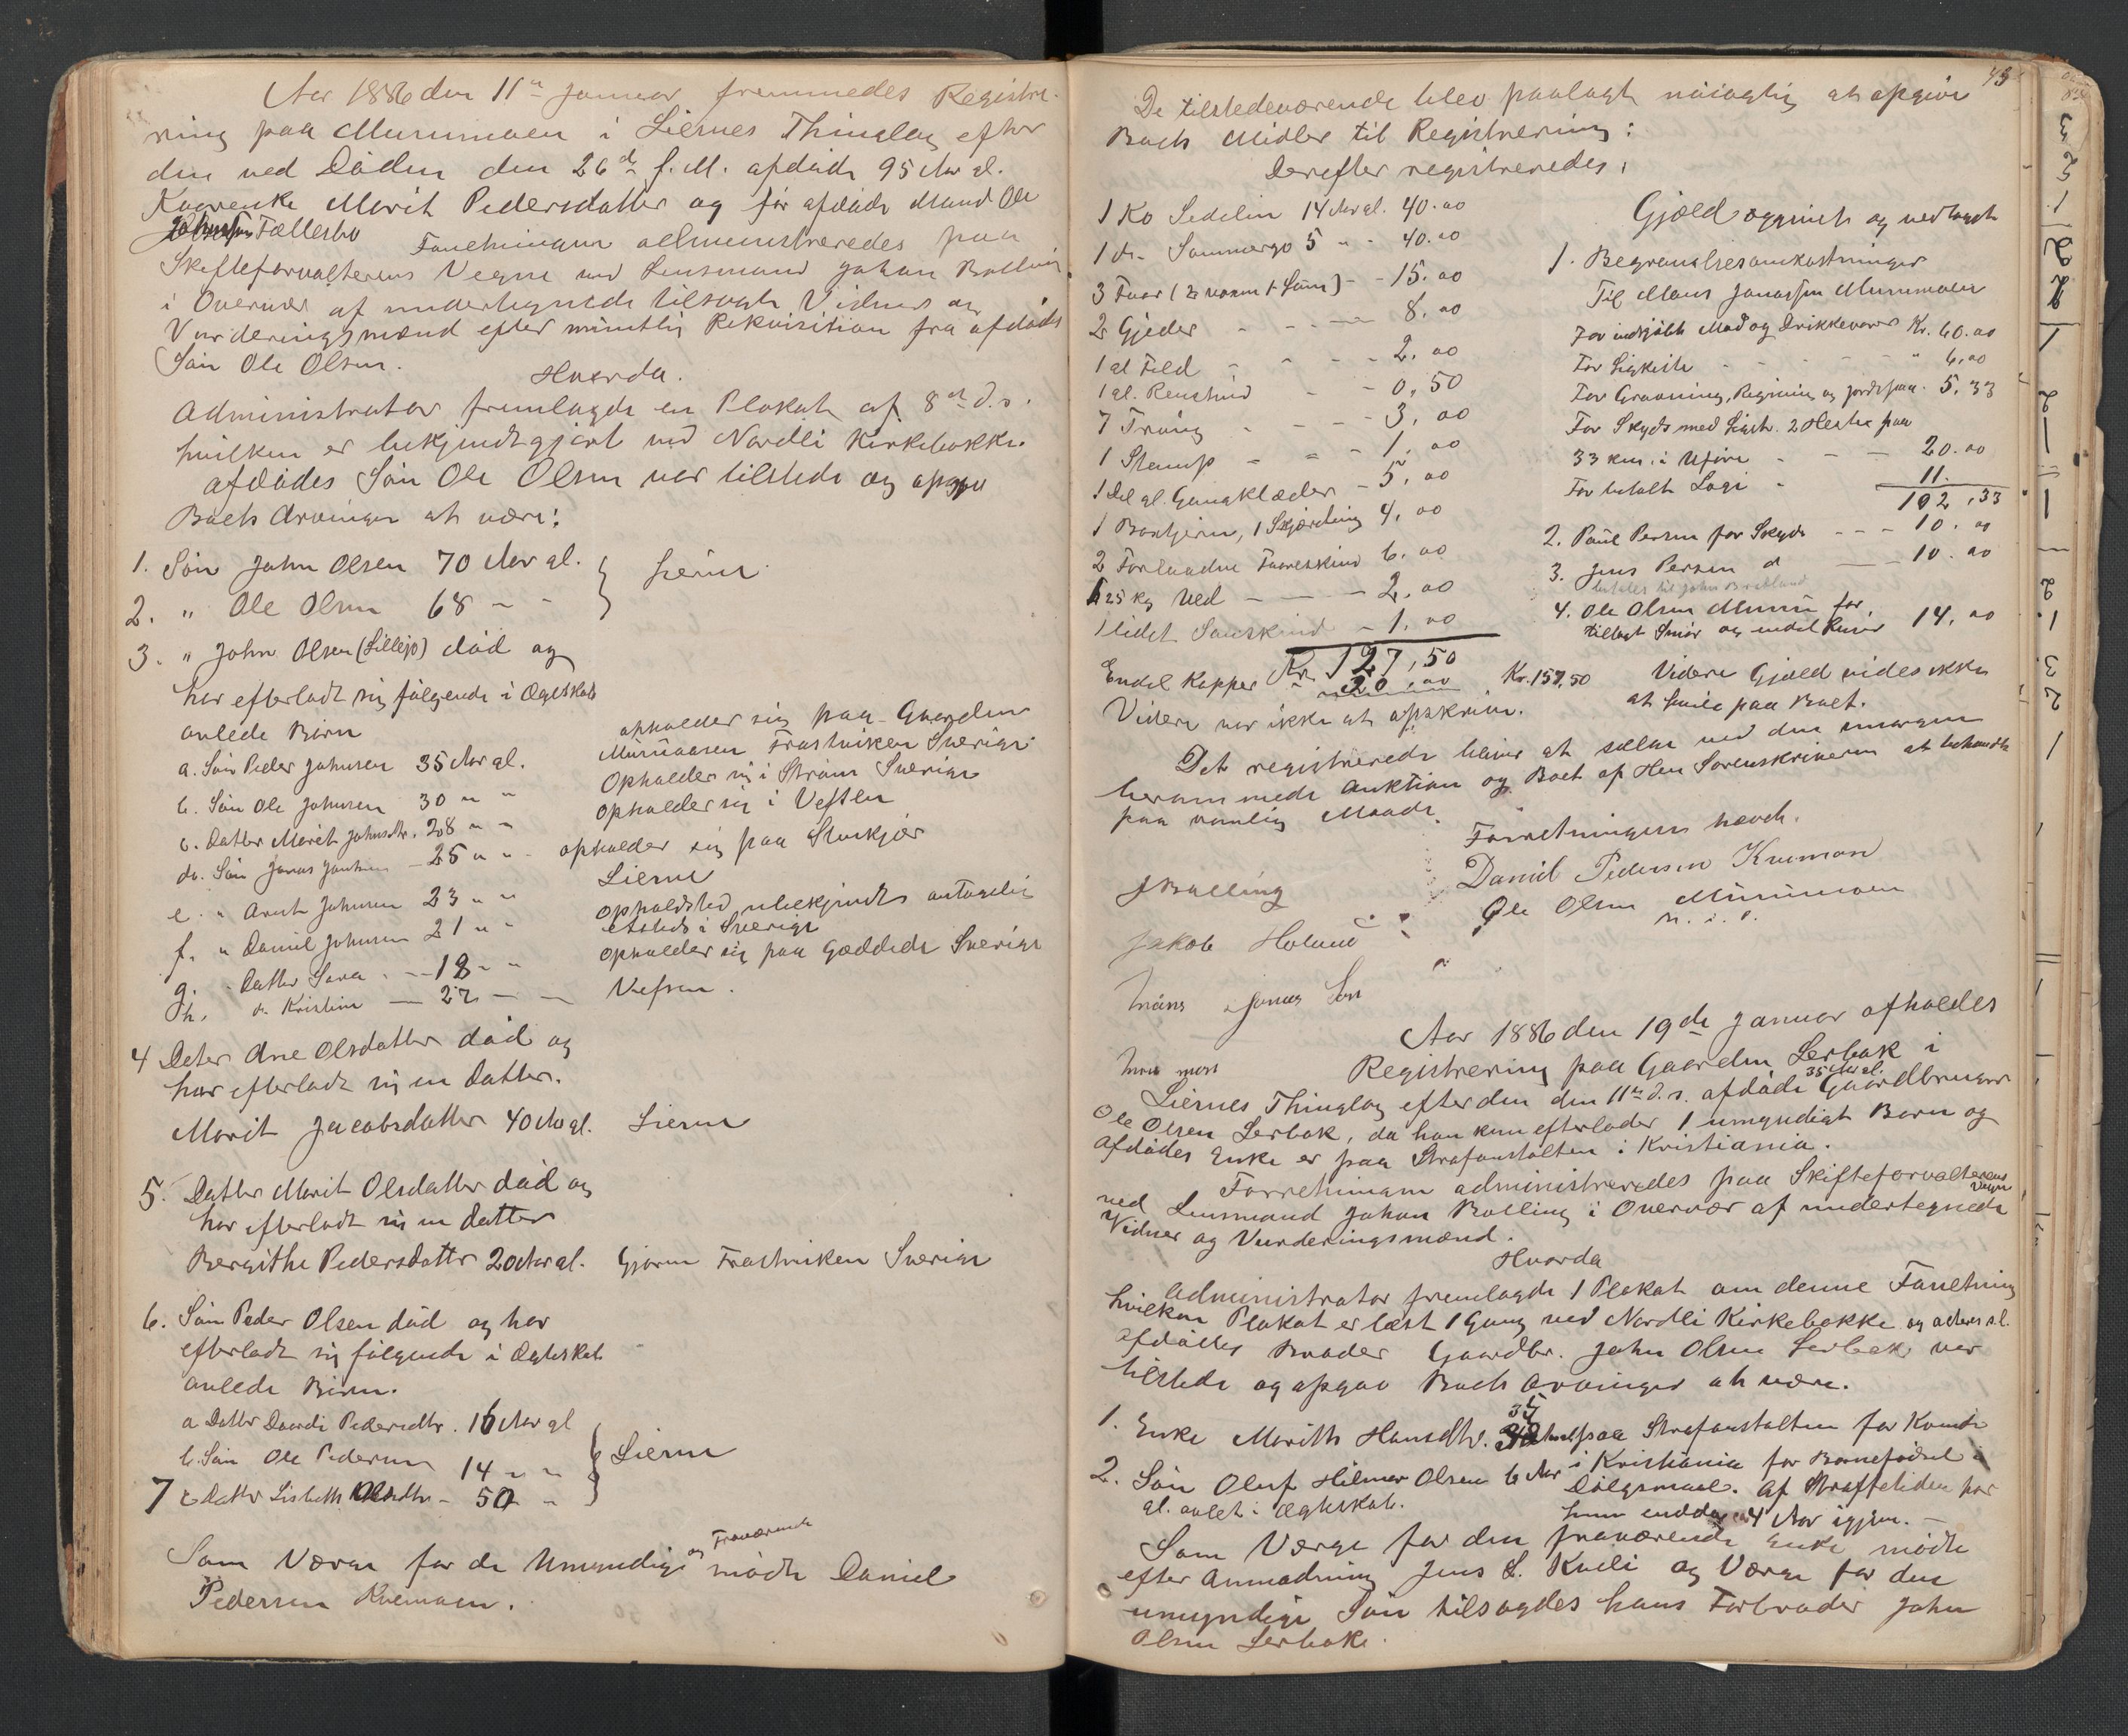 Aar 1886 den 11te Januar fremmedes Registre-
ring paa Murumoen i Liernes Thinglag efter
den ved Döden den 26de f. M. afdöde 95 Aar gl.
Kaarenke Marit Pedersdatter og för afdöde Mand Ole
Johnsen Fællesbo Forretningen administreredes paa
Skifteforvalterens Vegne ved Lensmand Johan Bolling
i Overvær af undertegnede tilsagte Vidner og
Vurderingsmænd efter mündtlig Rekvisition fra afdödes
Sön Ole Olsen.
Hvorda.
Administrator fremlagde en Plakat af 8de d. s.
hvilken er bekjendtgjort ved Nordli Kirkebakke.
afdödes Sön Ole Olsen var tilstede og opgav
Boets Arvinger at være:
1. Sön John Olsen 70 Aar gl. } Lierne
2. " Ole Olsen 68 - -
3. " John Olsen (Lillejo) död og
har efterladt sig fölgende i Ægteskab
avlede Börn
a. Sön Peder Johnsen 35 Aar gl. opholder sig paa Gaarden
Murüaasen Frostviken Sverige
b. Sön Ole Johnsen 30 " " Opholder sig i Ström Sverige
c. Datter Marit Johnsdtr. 28 " " opholder sig i Vefsen
d. Sön Jonas Johnsen - 25 " " opholder sig paa Stenkjær
e. " Arnt Johnsen 23 " " Lierne
f. " Daniel Johnsen 21 " " opholdsted ubekjendt antagelig
etsteds i Sverige
g. Datter Sara - 18 - - opholder sig paa Gæddede Sverige
h. d. Kristine - 27 - - Vefsen.
4 Deter Ane Olsdatter död og
har efterladt sig en Datter.
Marit Jacobsdatter 40 Aar gl. Lierne
5. Datter Marit Olsdatter död og
har efterladt sig en Datter
Bergithe Pedersdatter 20 Aar gl. Gjersen Frostviken Sverige
6. Sön Peder Olsen död og har
efterladt sig fölgende i Ægteskab
avlede Börn.
a Datter Dordi Pedersdtr. 16 Aar gl
b. Sön Ole Pedersen 14 - - } Lierne
7 Datter Lisbeth Olsdtr - 50 -
Som Værge for de Umyndige og Fraværende mödte Daniel
Pedersen Kvemoen.
43
De tilstedeværende blev paalagt nöiagtig at opgive
Boets Midler til Registrering:
Derefter registreredes:
1 Ko Sedelin 14 Aar gl. 40.00
1 d. Sommergo 5 " - 40.00
3 Faar (2 voxen 1 Lam) - - 15.00
2 Gjeder - - - 8.00
1 gl Feld - - - 2.00
1 gl. Renshud - 0,50
7 Traug - - - 3,00
1 Stamp - - - 1.00
1 Del gl. Gangklæder - 5,00
1 Baxtjern, 1 Skjærding 4,00
2 Forladne Faareskind 6.00
25 kg Ved - - - 2.00
1 lidet Saueskind - 1.00
Kr. 127,50
Endel Kopper - 30,00 Kr. 157,50
Videre var ikke at opskrive.
Gjæld opgivet og vedtaget
1. Begravelsesomkostninger
Til Mons Jonassen Murumoen
For indkjöbte Mad og Drikkevarer Kr. 60.00
For Ligkiste - - - - " 6,00
For Gravning, Ringning og Jordspaa. 5,33
For Skyds med Ligt. 2 Heste paa
33 km. i Uföre - - - 20.00
For betalt Logi - 11.
102,33
2. Paul Persen for Skyds - - - 10.00
3. Jens Persen d - - 10.00
betales til John Bratland
4. Ole Olsen Murü for
tillagt Smör og endel Reiser 14,00
Videre Gjæld vides ikke
at hvile paa Boet.
Det registrerede bliver at sælge ved den imorgen
berammede Auktion og Boet af Herr Sorenskriveren at behandle
paa vanlig Maade.
Forretningen hævet.
JBolling
Daniel Pedersen Kvemoen
Ole Olsen Murümoen
m. i. P.
Jakob Holand
Mons Jonas Sen
Muru moen
Aar 1886 den 19de Januar afholdes
Registrering paa Gaarden Lerbak i
Liernes Thinglag efter den den 11te d. s. afdöde 35 Aar gl. Gaardbruger
Ole Olsen Lerbak, da han kun efterlader 1 umyndigt Barn og
afdödes Enke er paa Strafanstalten i Kristiania.
Forretningen administreredes paa Skifteforvalterens Vegne
ved Lensmand Johan Bolling i Overvær af undertegnede
Vidner og Vurderingsmænd.
Hvorda
Administrator fremlagde 1 Plakat om denne Forretning
hvilken Plakat er læst 1 Gang ved Nordli Kirkebakke og
afdödes Broder Gaardbr. John Olsen Lerbak var
tilstede og opgav Boets Arvinger at være.
1. Enke Marith Hansdtr. 35 Aar paa Strafanstalten for Kvinder
i Kristiania for Barnefödsel i
2. Sön Oluf Hilmar Olsen 6 Aar Dölgsmaal. Af Straffetiden har
gl. avlet i Ægteskab. hun endda 4 Aar igjen. -
Som Værge for den fraværende Enke mödte
efter Anmodning Jens L. Kveli og Værge for den
umyndige Sön tilsagdes hans Farbroder John
Olsen Lerbak.